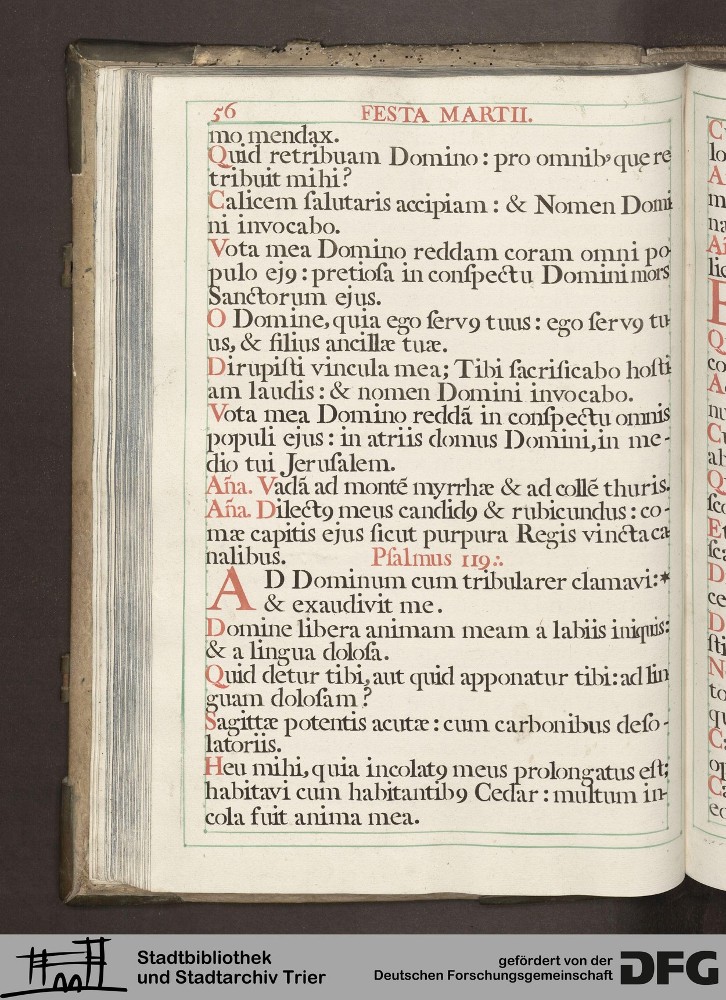 56 FESTA MARTII.
mo mendax.
Quid retribuam Domino: pro omnibꝰ quę re
tribuit mihi?
Calicem ſalutaris accipiam: & Nomen Domi
ni invocabo.
Vota mea Domino reddam coram omni po-
pulo ejꝰ: pretioſa in conſpectu Domini mors
Sanctorum ejus.
O Domine, quia ego ſervꝰ tuus: ego ſervꝰ tu-
us, & filius ancillæ tuæ.
Dirupiſti vincula mea; Tibi ſacrificabo hoſti
am laudis: & nomen Domini invocabo.
Vota mea Domino reddã in conſpectu omnis
populi ejus: in atriis domus Domini, in me-
dio tui Jeruſalem.
Aña. Vadã ad montẽ myrrhæ & ad collẽ thuris.
Aña. Dilectꝰ meus candidꝰ & rubicundus: co-
mæ capitis ejus ſicut purpura Regis vincta ca-
nalibus. Pſalmus 119.:.
AD Dominum cum tribularer clamavi:*
& exaudivit me.
Domine libera animam meam á labiis iniquis:
& a lingua doloſa.
Quid detur tibi, aut quid apponatur tibi: ad lin
guam doloſam?
Sagittæ potentis acutæ: cum carbonibus deſo-
latoriis.
Heu mihi, quia incolatꝰ meus prolongatus eſt;
habitavi cum habitantibꝰ Cedar: multum in-
cola fuit anima mea.
Stadtbibliothek
und Stadtarchiv Trier
gefördert von der
Deutschen Forschungsgemeinschaft
DFG